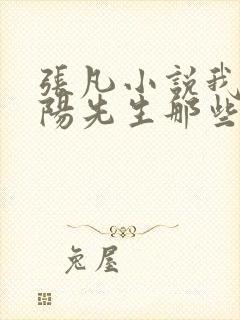 張凡小說我
陽先生那些
兔屋